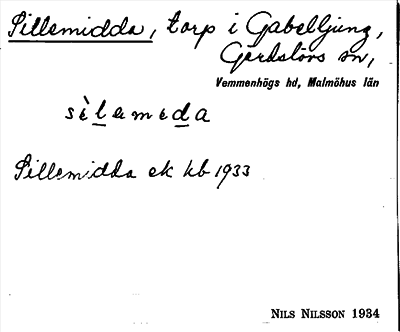 Sillemidda, torp i Gabelljung,
Gärdslövs sn,
Vemmenhögs hd, Malmöhus län
Sillemidda ek kb 1933
NILS NILSSON 1934